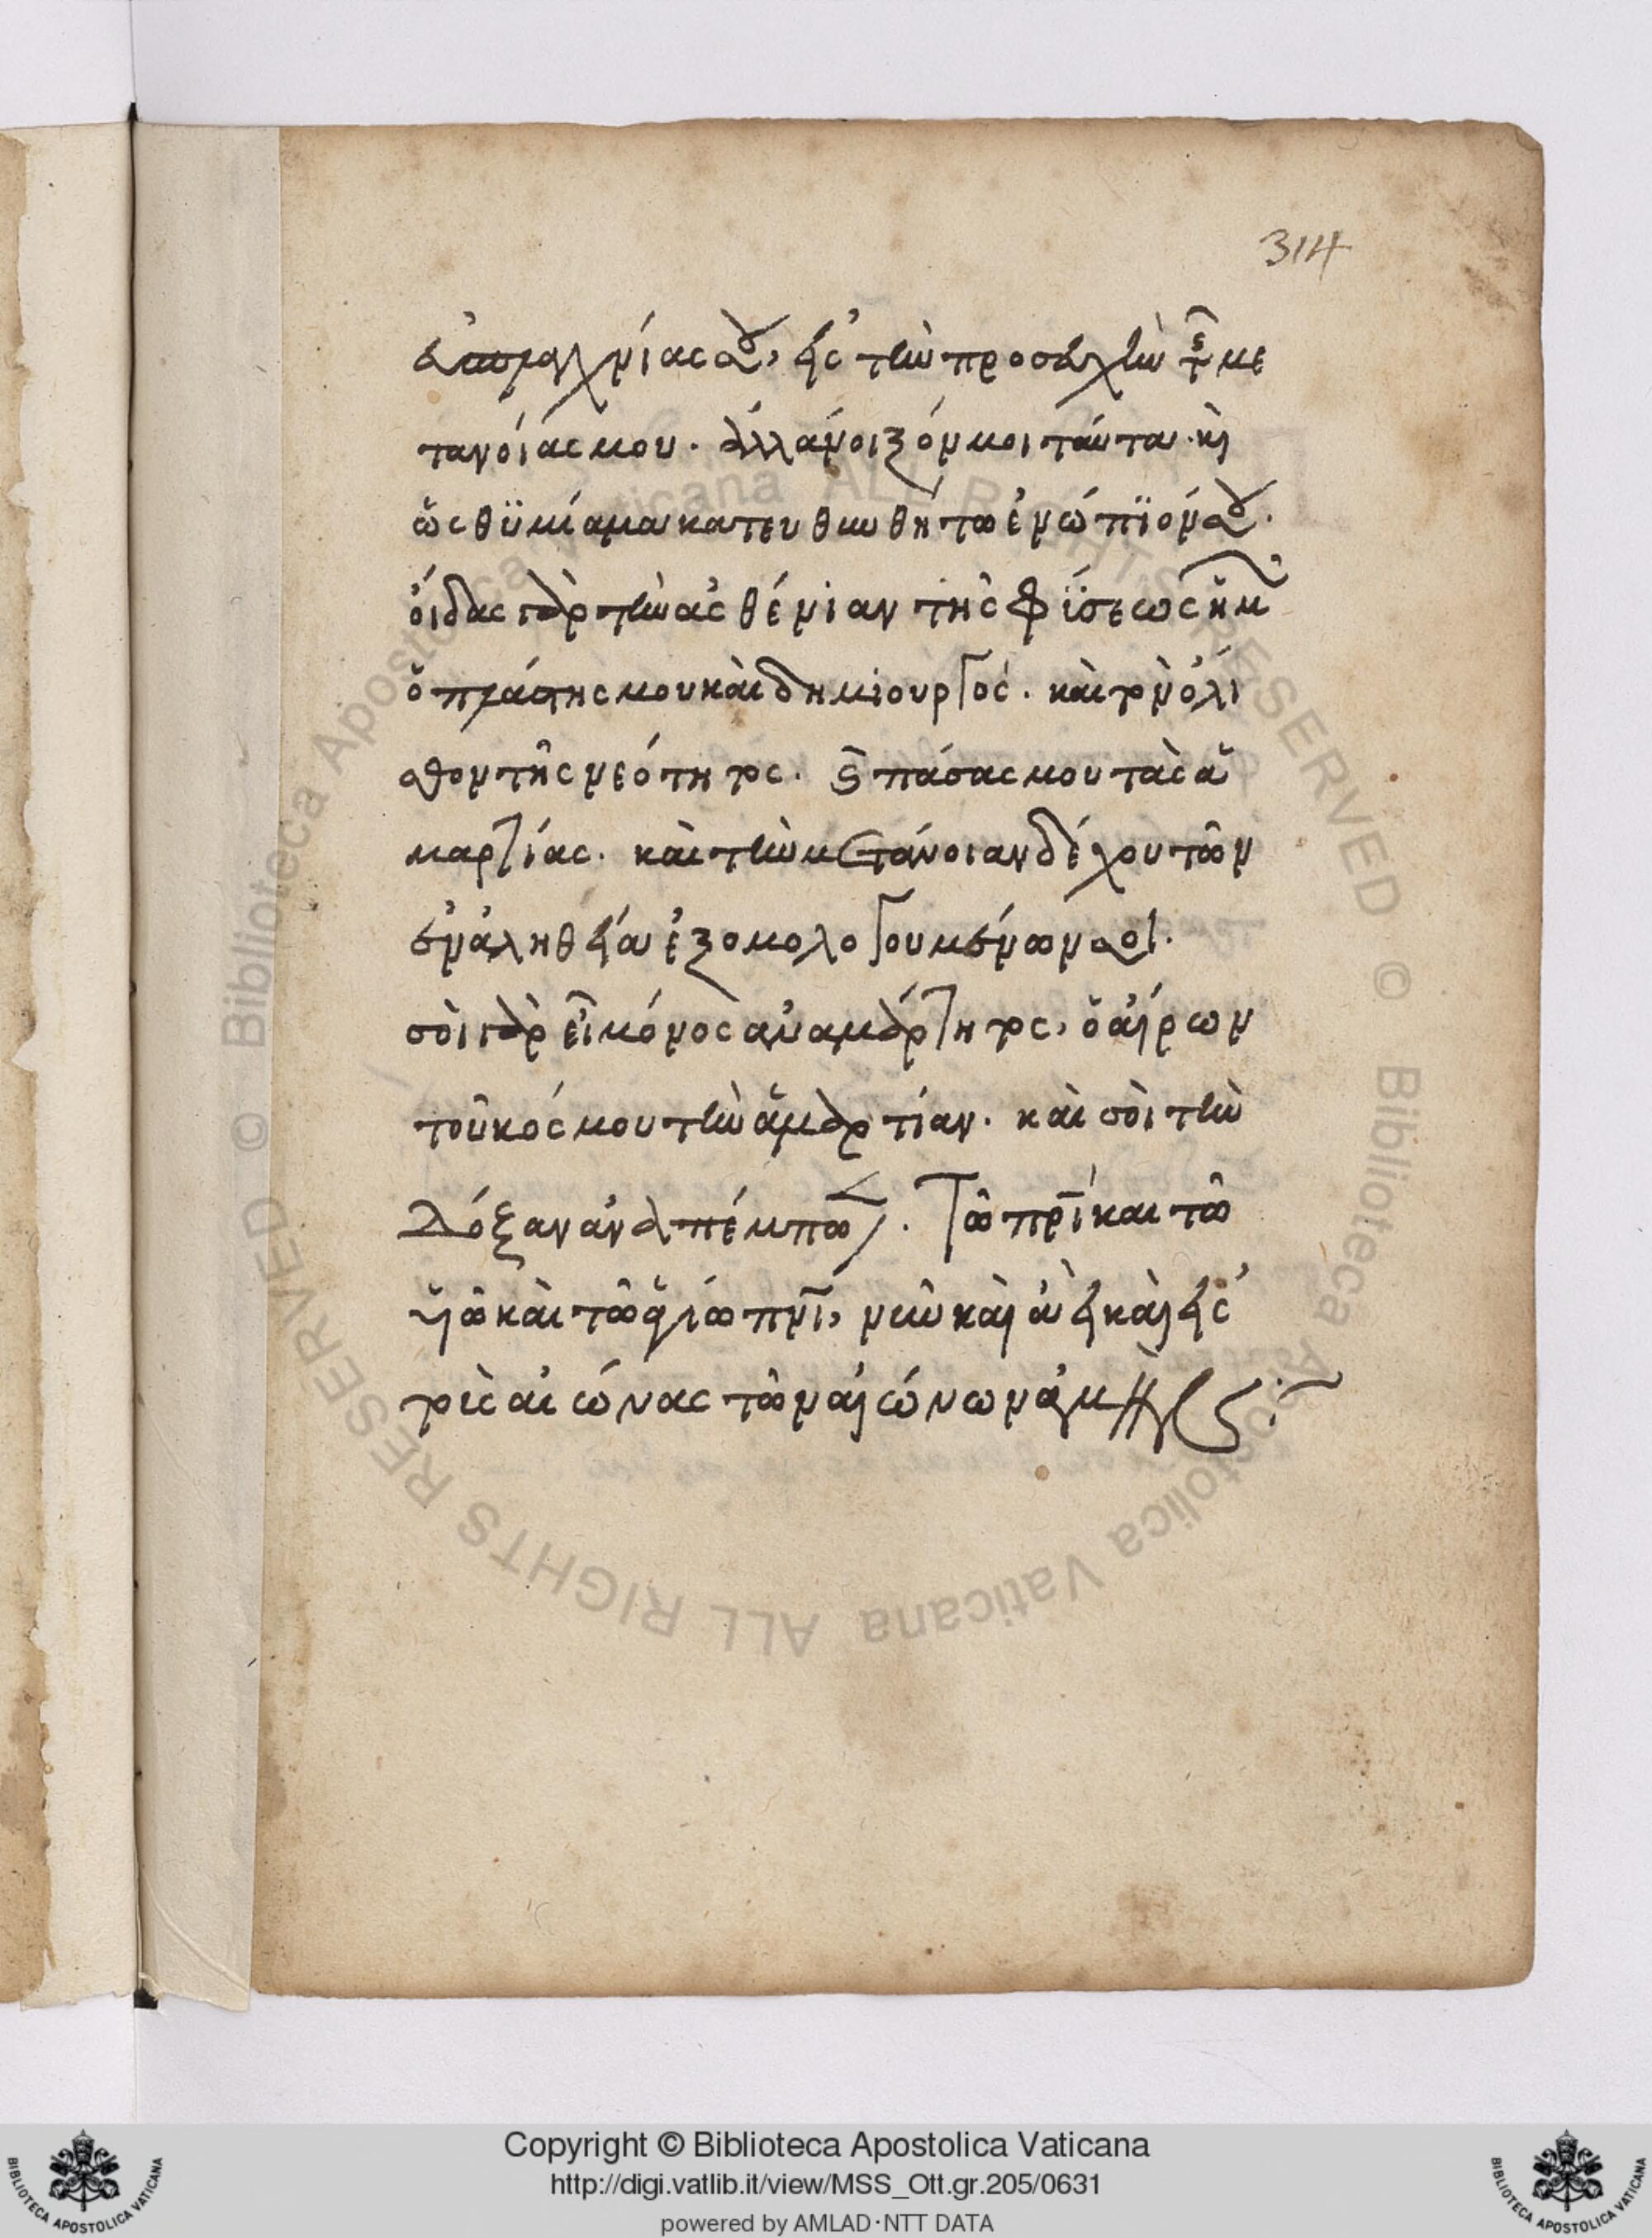 314
εὐσπλαγχνίας σου, εἰς τὴν προσευχὴν τῆς με
τανοίας μου. ἀλλ' ἄνοιξόν μοι ταῦτα. καὶ
ὡς θϋμίαμα κατευθυνθήτω ἐνώπϊόν σου.
οἶδας γὰρ τὴν ἀσθένιαν τῆς φΐσεως ἡμῶν
ὁ πλάστης μου καὶ δημιουργός. καὶ τὸ ὀλί
σθον τῆς νεότητος. καὶ πάσας μου τὰς ἁ
μαρτίας. καὶ τὴν μετάνοιαν δέχου τῶν
ἐν ἀληθεία ἐξομολογουμένων σοι.
σὺ γὰρ εἶ μόνος ἀναμάρτητος, ὁ αἴρων
τοῦ κόσμου τὴν ἁμαρτίαν. καὶ σοὶ τὴν
Δόξαν ἀναπέμπω. Τῶ πρὶ καὶ τῶ
υἱῶ καὶ τῶ ἁγίω πνι, νῦν καὶ ἀεὶ καὶ εἰς
τοὺς αἰῶνας τῶν αἰώνων ἀμήν
Copyright © Biblioteca Apostolica Vaticana
http://digi.vatlib.it/view/MSS_Ott.gr.205/0631
powered by AMLAD·NTT DATA
BIBLIOTECA APOSTOLICA VATICANA
BIBLIOTECA APOSTOLICA VATICANA
© Biblioteca Apostolica Vaticana ALL RIGHTS RESERVED © Biblioteca Apostolica Vaticana ALL RIGHTS RESERVED